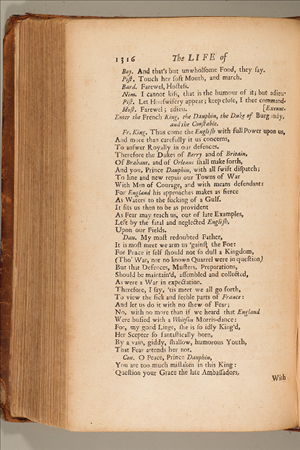 1316 The LIFE of
Boy. And that's but unwholsome Food, they say.
Pist. Touch her soft Mouth, and march.
Bard. Farewel, Hostess.
Nim. I cannot kiss, that is the humour of it; but adieu.
Pist. Let Houswifery appear; keep close, I thee command.
Host. Farewel; adieu. [Exeunt.
Enter the French King, the Dauphin, the Duke of Burgundy,
and the Constable.
Fr. King. Thus come the English with full Power upon us,
And more than carefully it us concerns,
To answer Royally in our defences.
Therefore the Dukes of Berry and of Britain,
Of Brabant, and of Orleans shall make forth,
And you, Prince Dauphin, with all swift dispatch;
To line and new repair our Towns of War
With Men of Courage, and with means defendant:
For England his approaches makes as fierce
As Waters to the sucking of a Gulf.
It fits us then to be as provident
As Fear may teach us, out of late Examples,
Left by the fatal and neglected English,
Upon our Fields.
Dau. My most redoubted Father,
It is most meet we arm us 'gainst the Foe:
For Peace it self should not so dull a Kingdom,
(Tho' War, nor no known Quarrel were in question)
But that Defences, Musters, Preparations,
Should be maintain'd, assembled and collected,
As were a War in expectation.
Therefore, I say, 'tis meet we all go forth,
To view the sick and feeble parts of France:
And let us do it with no shew of Fear;
No, with no more than if we heard that England
Were busied with a Whitson Morris-dance:
For, my good Liege, she is so idly King'd,
Her Scepter so fantastically born,
By a vain, giddy, shallow, humorous Youth,
That Fear attends her not.
Con. O Peace, Prince Dauphin,
You are too much mistaken in this King:
Question your Grace the late Ambassadors,
With